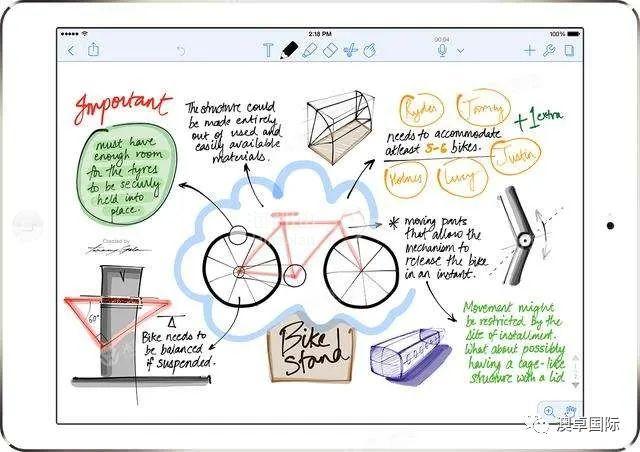 2:18 PM
100%
T
00:04
Important
must have
enough room
for the tyres
to be securly
held into
place.
The structure could
be made entirely
out of used and
easily available
materials.
Ryder
Tommy
+1 extra
needs to accommodate
atleast 5-6 bikes.
Justin
Holmes
Lucy
* moving parts
that allow the
mechanism to
release the bike
in an instant.
Created by
60°
Bike needs to
be balanced
if suspended.
Bike
Stand
Movement might
be restricted by the
site of installment.
What about possibly
having a cage-like
structure with a lid
澳卓国际